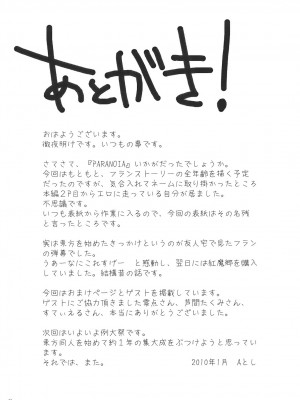 あとがき!
おはようございます。
徹夜明けです。いつもの事です。
さてさて、『PARANOIA』いかがだったでしょうか。
今回はもともと、フランストーリーの全年齢を描く予定
だったのですが、気合入れてネームに取り掛かったところ
本編2P目からエロに走っている自分が居ました。
不思議です。
いつも表紙から作業に入るので、今回の表紙はその名残
と言ったところです。
実は東方を始めたきっかけというのが友人宅で見たフラン
の弾幕でした。
うあーなにこれすげー と感動し、翌日には紅魔郷を購入
していました。結構昔の話です。
今回はおまけページとゲストを掲載しています。
ゲストにご協力頂きました零点さん、芦間たくみさん、
すてぃぇるさん、本当にありがとうございました。
次回はいよいよ例大祭です。
東方同人を始めて約1年の集大成をぶつけようと思ってい
ます。
それでは、また。 2010年1月 Aとし